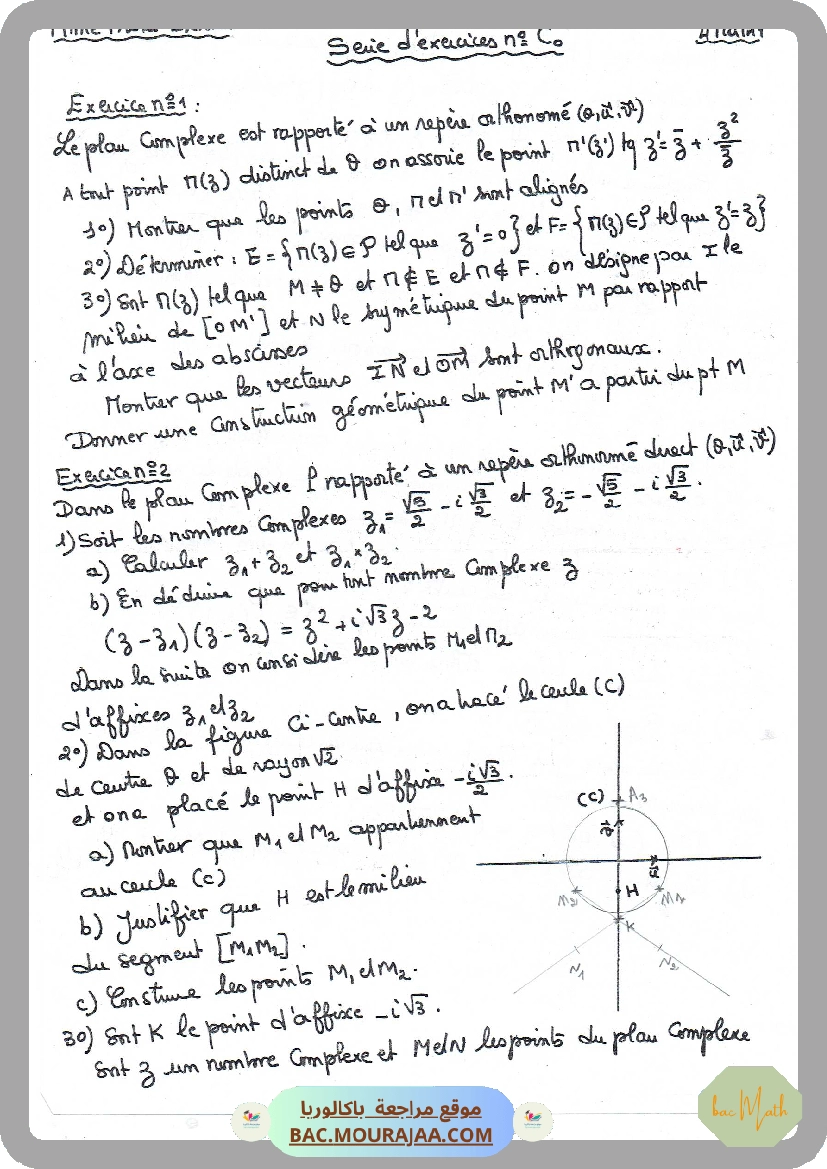 Serie d'exercices n° C₀
Exercice n°1 :
Le plan Complexe est rapporté à un repère orthonomé (o, u⃗, v⃗)
A tout point M(z) distinct de O on associe le point M'(z') tq z' = z̄ + z²/z̄
1°) Montrer que les points O, M et M' sont alignés
2°) Déterminer : E = {M(z) ∈ P tel que z' = 0} et F = {M(z) ∈ P tel que z' = z}
3°) Soit M(z) tel que M ≠ O et M ∉ E et M ∉ F. on désigne par I le
milieu de [OM'] et N le symétrique du point M par rapport
à l'axe des abscisses
Montrer que les vecteurs IN⃗ et OM⃗ sont orthogonaux.
Donner une construction géométrique du point M' a partir du pt M
Exercice n°2
Dans le plan Complexe P rapporté à un repère orthonormé direct (O, u⃗, v⃗)
1) Soit les nombres Complexes z₁ = √5/2 - i √3/2 et z₂ = - √5/2 - i √3/2 .
a) Calculer z₁ + z₂ et z₁ × z₂.
b) En déduire que pour tout nombre Complexe z
(z - z₁)(z - z₂) = z² + i√3 z - 2
Dans la suite on considère les points M₁ et M₂
d'affixes z₁ et z₂
2°) Dans la figure ci-contre, on a tracé le cercle (C)
de centre O et de rayon √2
et on a placé le point H d'affixe - i√3/2 .
a) Montrer que M₁ et M₂ appartiennent
au cercle (C)
b) Justifier que H est le milieu
du segment [M₁M₂] .
c) Construire les points M₁ et M₂.
3°) Soit K le point d'affixe - i√3 .
Soit z un nombre Complexe et M et N les points du plan Complexe
(C)
A₃
v⃗
√2
H
M₂
M₁
K
N₁
N₂
موقع مراجعة باكالوريا
BAC.MOURAJAA.COM
bac Math